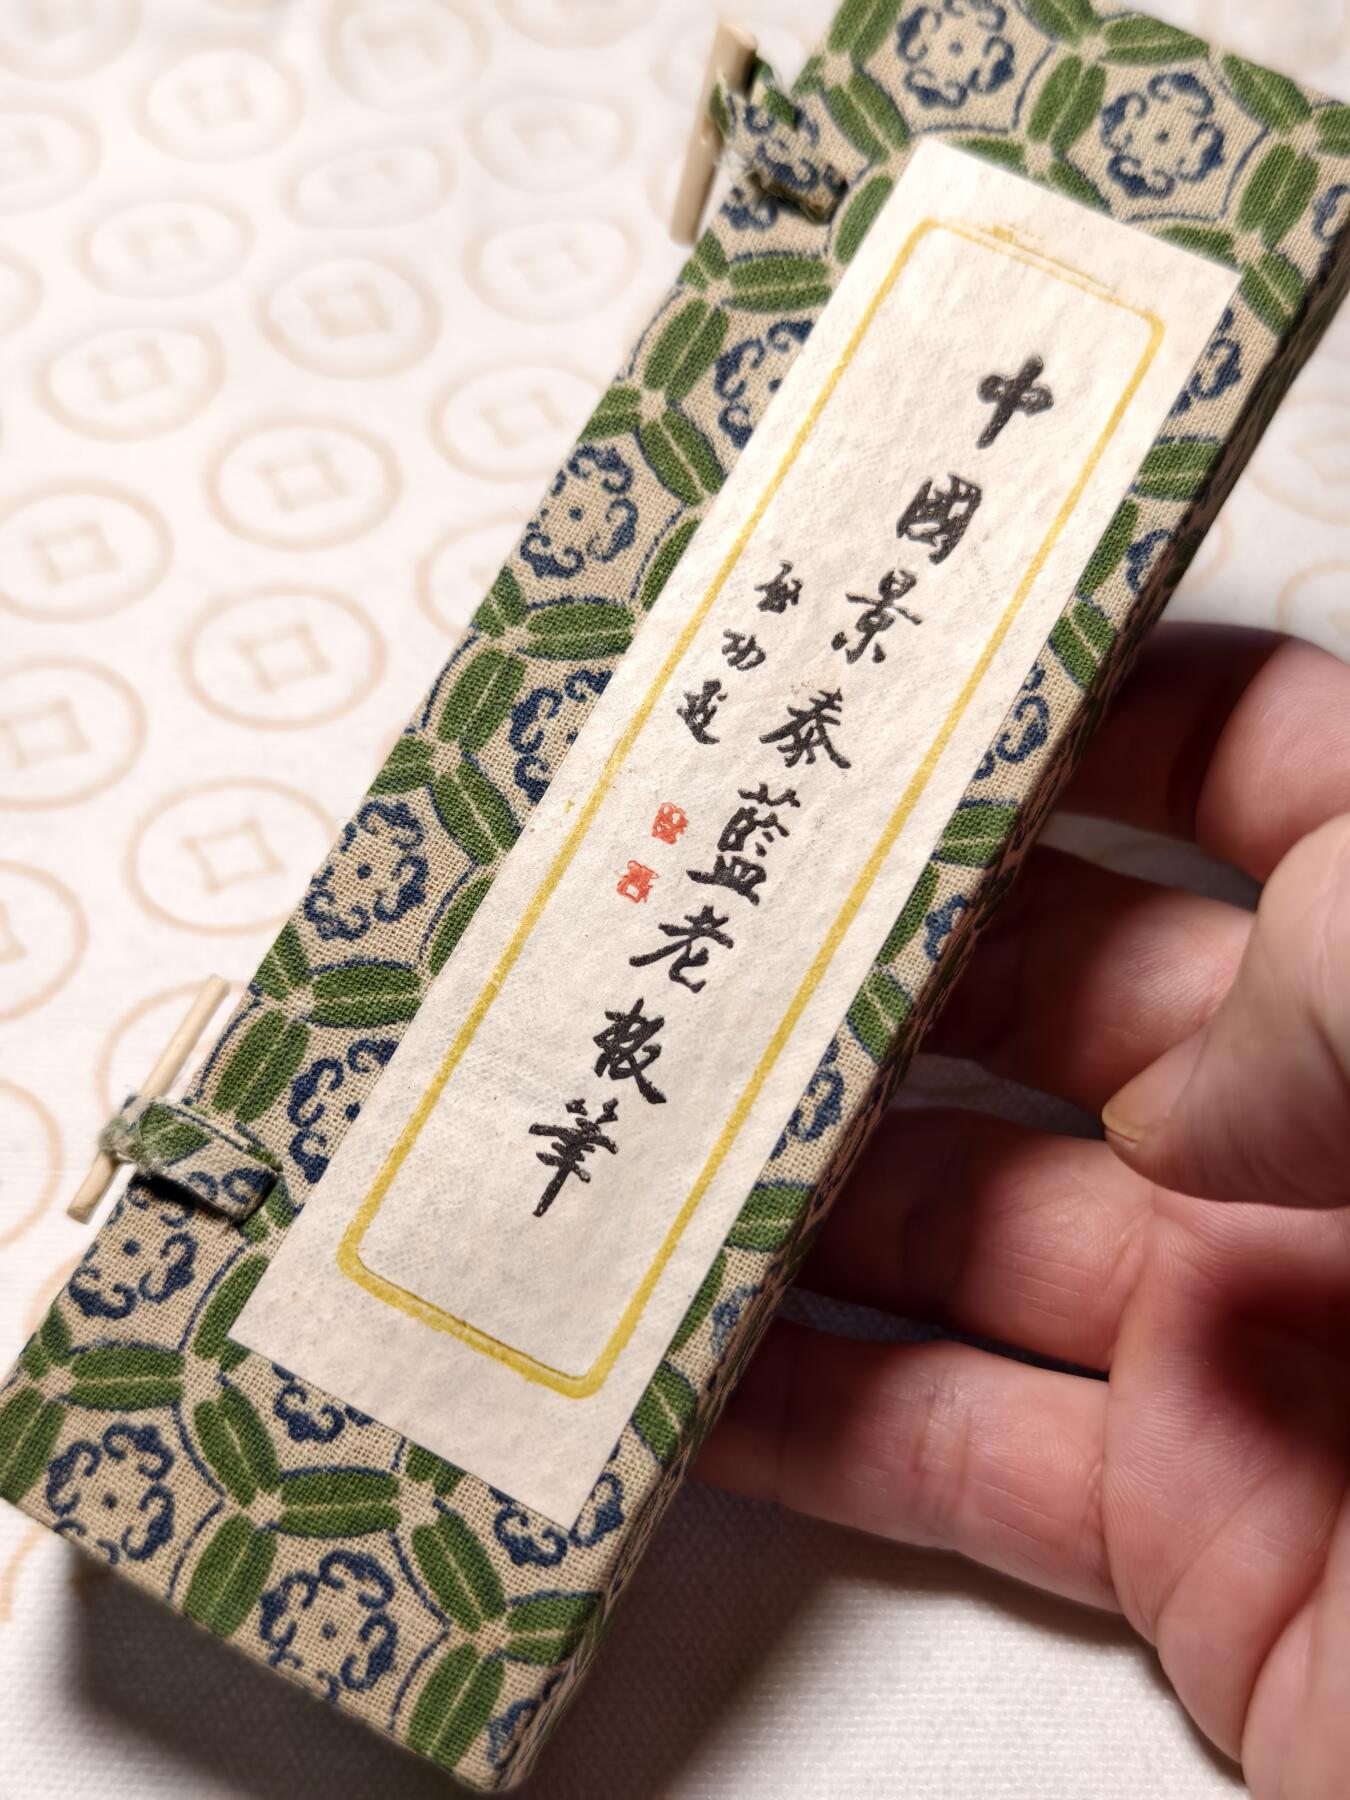 中國景泰藍老板筆
啟功題